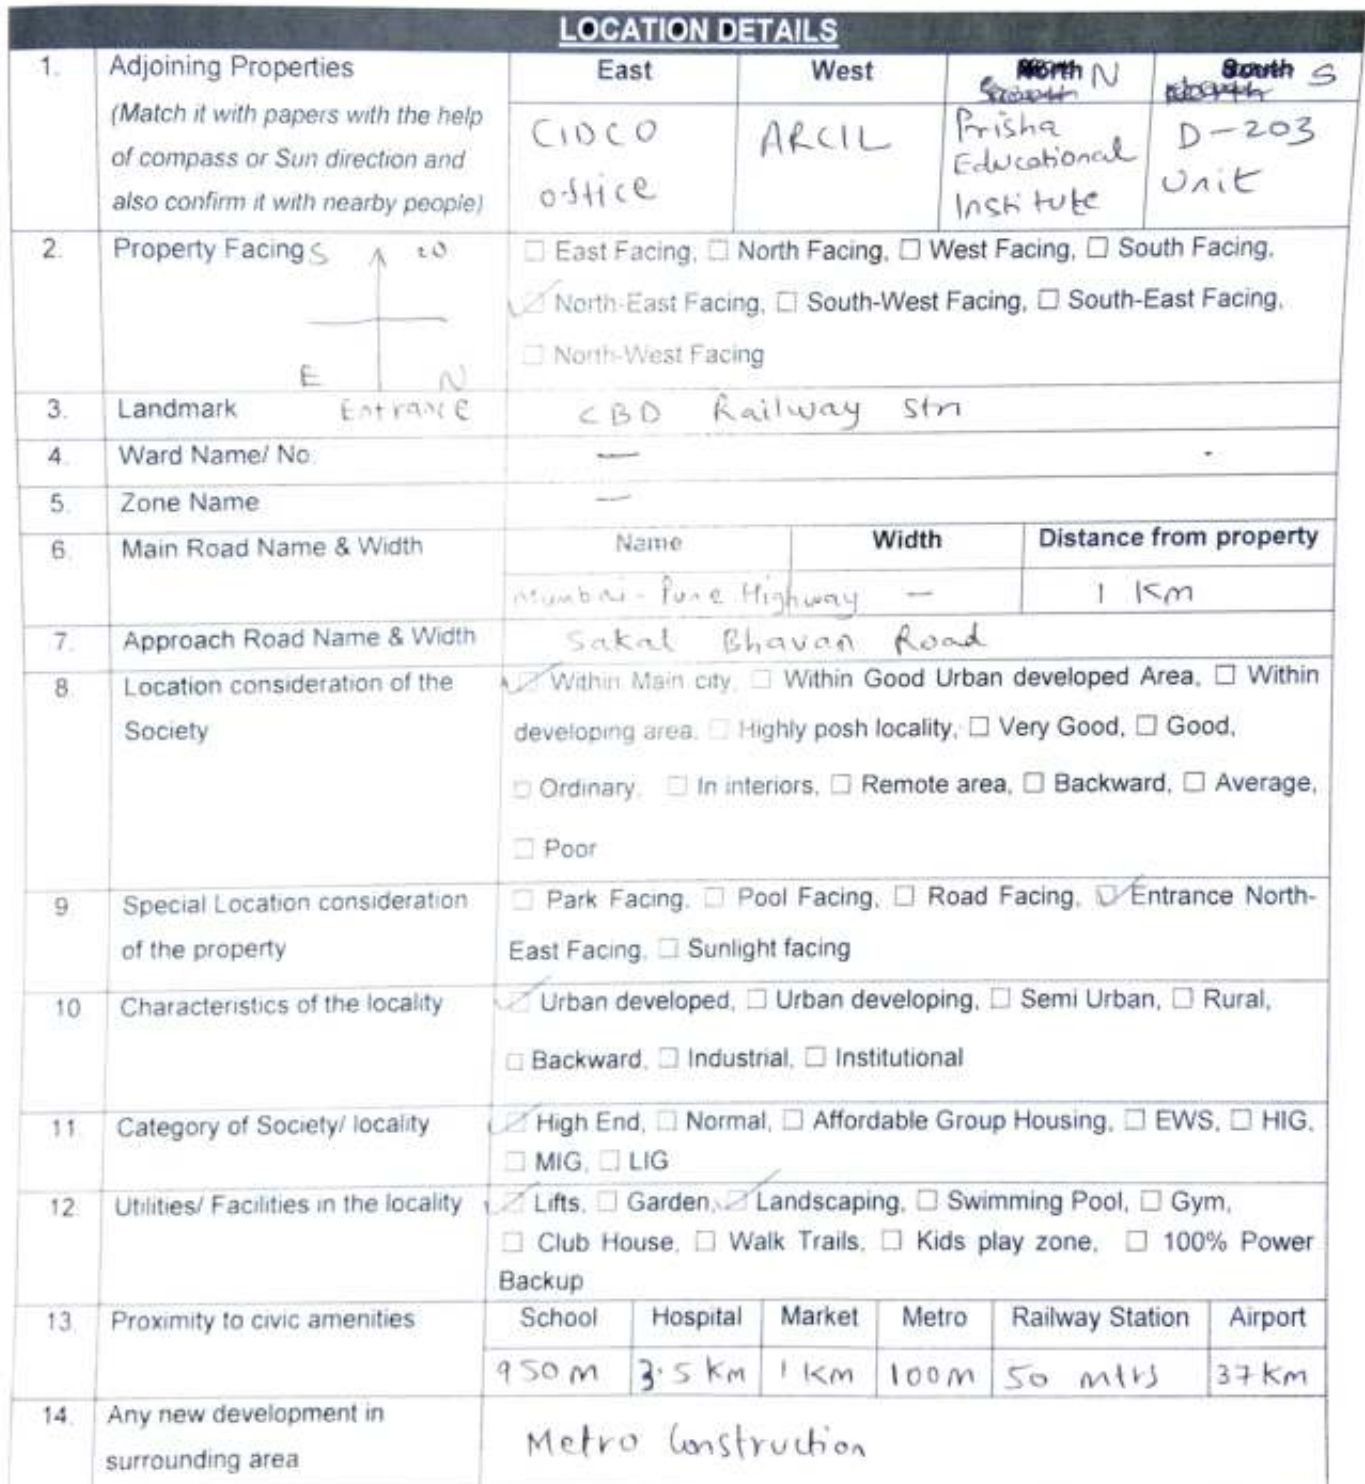 LOCATION DETAILS
1. Adjoining Properties East West North N South S
(Match it with papers with the help of compass or Sun direction and also confirm it with nearby people)
CIDCO office ARCIL Prisha Educational Institute D-203 Unit
2. Property Facing S W
E N
Entrance
☐ East Facing, ☐ North Facing, ☐ West Facing, ☐ South Facing,
☑ North-East Facing, ☐ South-West Facing, ☐ South-East Facing,
☐ North-West Facing
3. Landmark CBD Railway Stn
4. Ward Name/ No. —
5. Zone Name —
6. Main Road Name & Width Name Width Distance from property
Mumbai - Pune Highway — 1 Km
7. Approach Road Name & Width Sakal Bhavan Road
8. Location consideration of the Society
☑ Within Main city, ☐ Within Good Urban developed Area, ☐ Within
developing area, ☐ Highly posh locality, ☐ Very Good, ☐ Good,
☐ Ordinary, ☐ In interiors, ☐ Remote area, ☐ Backward, ☐ Average,
☐ Poor
9. Special Location consideration of the property
☐ Park Facing, ☐ Pool Facing, ☐ Road Facing, ☑ Entrance North-
East Facing, ☐ Sunlight facing
10. Characteristics of the locality
☑ Urban developed, ☐ Urban developing, ☐ Semi Urban, ☐ Rural,
☐ Backward, ☐ Industrial, ☐ Institutional
11. Category of Society/ locality
☑ High End, ☐ Normal, ☐ Affordable Group Housing, ☐ EWS, ☐ HIG,
☐ MIG, ☐ LIG
12. Utilities/ Facilities in the locality
☑ Lifts, ☐ Garden, ☑ Landscaping, ☐ Swimming Pool, ☐ Gym,
☐ Club House, ☐ Walk Trails, ☐ Kids play zone, ☐ 100% Power
Backup
13. Proximity to civic amenities School Hospital Market Metro Railway Station Airport
950 m 3.5 Km 1 Km 100 m 50 mtrs 37 Km
14. Any new development in surrounding area Metro Construction